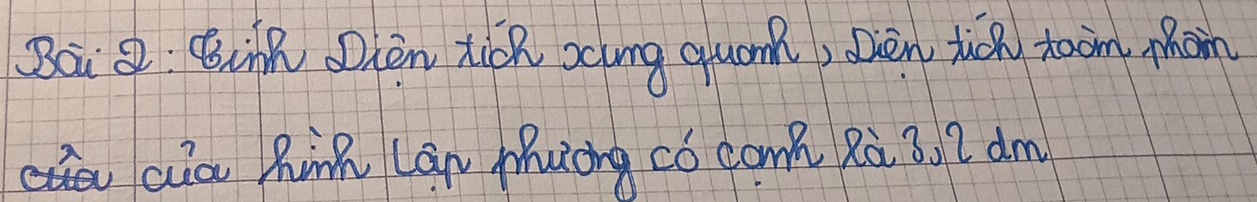 Bài 2: Tính Diện tích xung quanh, Diện tích toàn phần
của của hình lập phương có cạnh là 3,2 dm